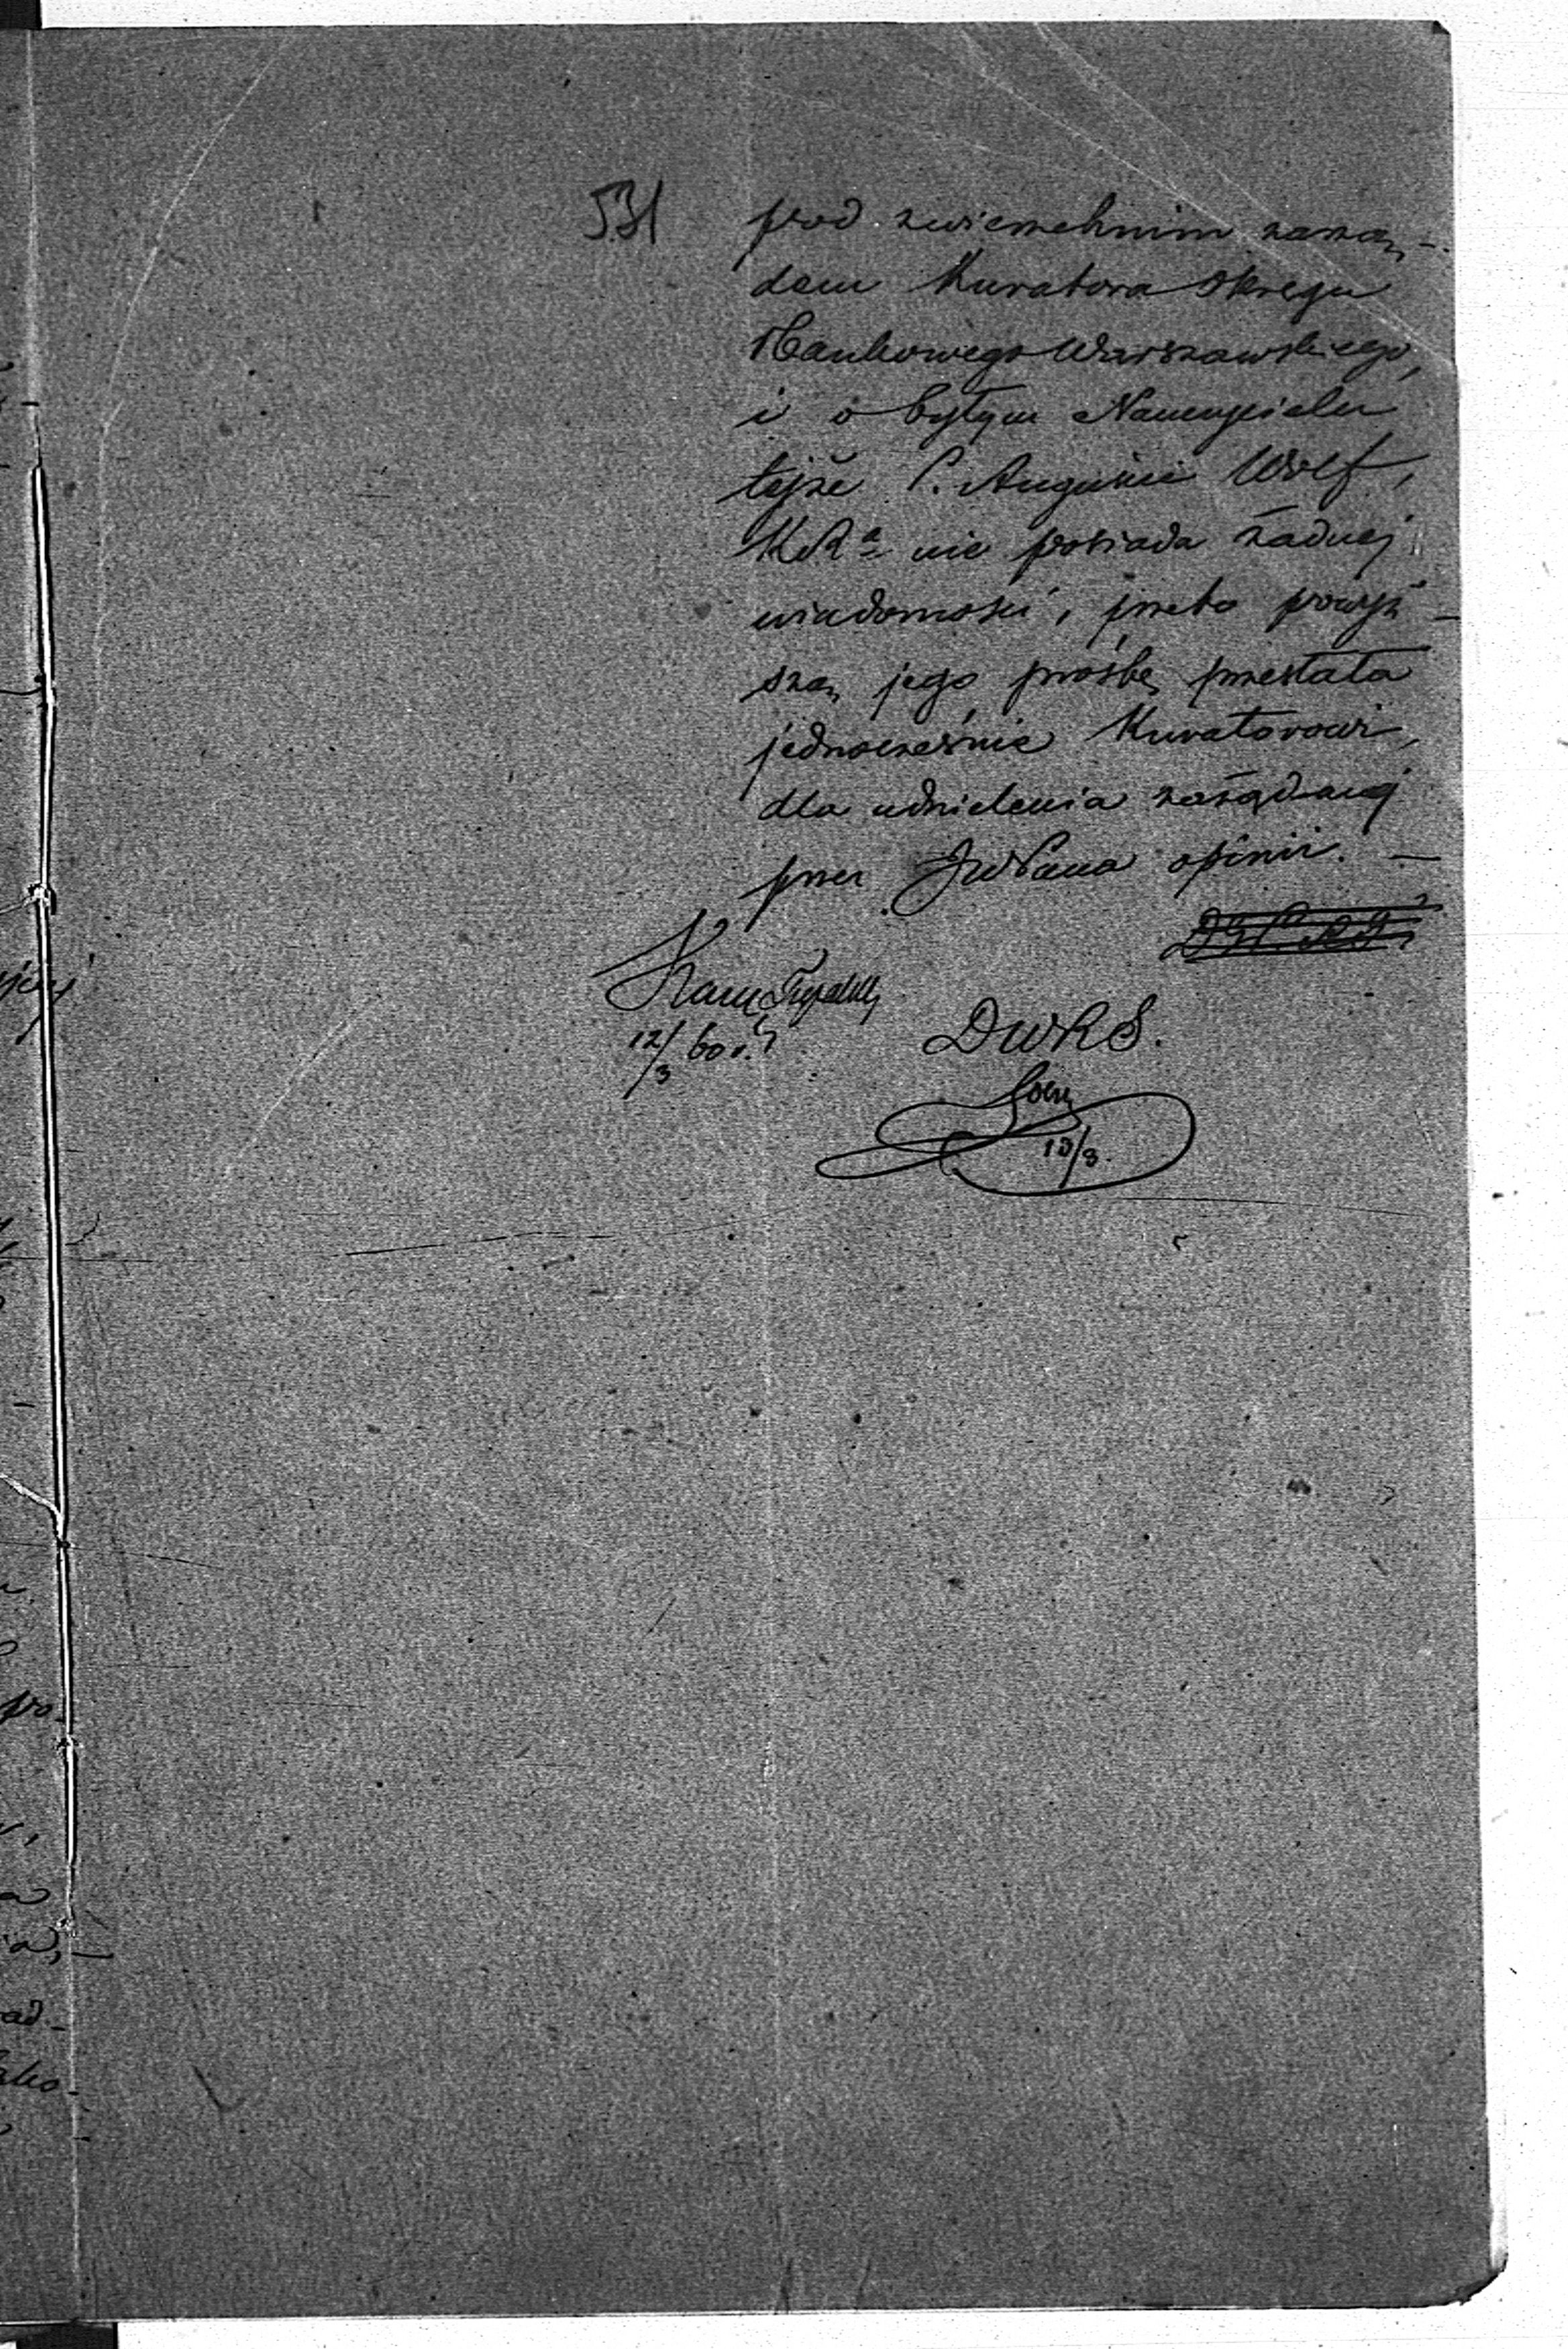 531
pod zwierzchnim zarzą-
dem Kuratora Okręgu
Naukowego Warszawskiego,
i o byłym Nauczycielu
tejże P. Auguście Wolf,
KRa nie posiada żadnej
wiadomości, przeto powyż-
szą jego prośbę przesłała
jednocześnie Kuratorowi,
dla udzielenia zażądanej
przez JWPana opinii. —
12/3 60 r.
DWRS.
13/3.